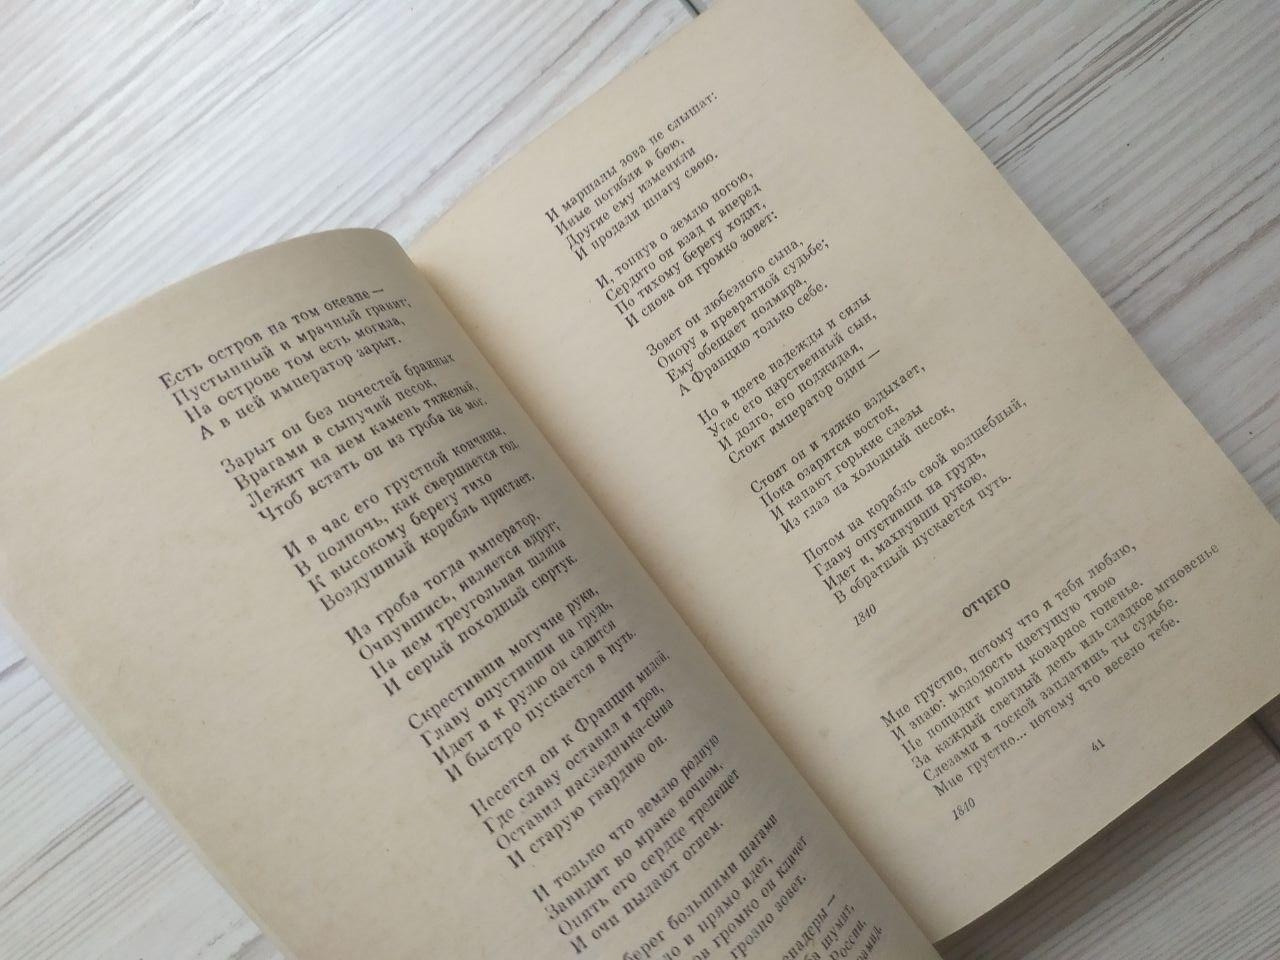 Есть остров на том океане —
Пустынный и мрачный гранит;
На острове том есть могила,
А в ней император зарыт.
Зарыт он без почестей бранных
Врагами в сыпучий песок,
Лежит на нем камень тяжелый,
Чтоб встать он из гроба не мог.
И в час его грустной кончины,
В полночь, как свершается год,
К высокому берегу тихо
Воздушный корабль пристает.
Из гроба тогда император,
Очнувшись, является вдруг;
На нем треугольная шляпа
И серый походный сюртук.
Скрестивши могучие руки,
Главу опустивши на грудь,
Идет и к рулю он садится
И быстро пускается в путь.
Несется он к Франции милой,
Где славу оставил и трон,
Оставил наследника-сына
И старую гвардию он.
И только что землю родную
Завидит во мраке ночном,
Опять его сердце трепещет
И очи пылают огнем.
берег большими шагами
и прямо идет,
громко он кличет
грозно зовет.
шумит,
России,
И маршалы зова не слышат:
Иные погибли в бою,
Другие ему изменили
И продали шпагу свою.
И, топнув о землю ногою,
Сердито он взад и вперед
По тихому берегу ходит,
И снова он громко зовет:
Зовет он любезного сына,
Опору в превратной судьбе;
Ему обещает полмира,
А Францию только себе.
Но в цвете надежды и силы
Угас его царственный сын,
И долго, его поджидая,
Стоит император один —
Стоит он и тяжко вздыхает,
Пока озарится восток,
И капают горькие слезы
Из глаз на холодный песок,
Потом на корабль свой волшебный,
Главу опустивши на грудь,
Идет и, махнувши рукою,
В обратный пускается путь.
1840
ОТЧЕГО
Мне грустно, потому что я тебя люблю,
И знаю: молодость цветущую твою
Не пощадит молвы коварное гоненье.
За каждый светлый день иль сладкое мгновенье
Слезами и тоской заплатишь ты судьбе.
Мне грустно... потому что весело тебе.
1840
41